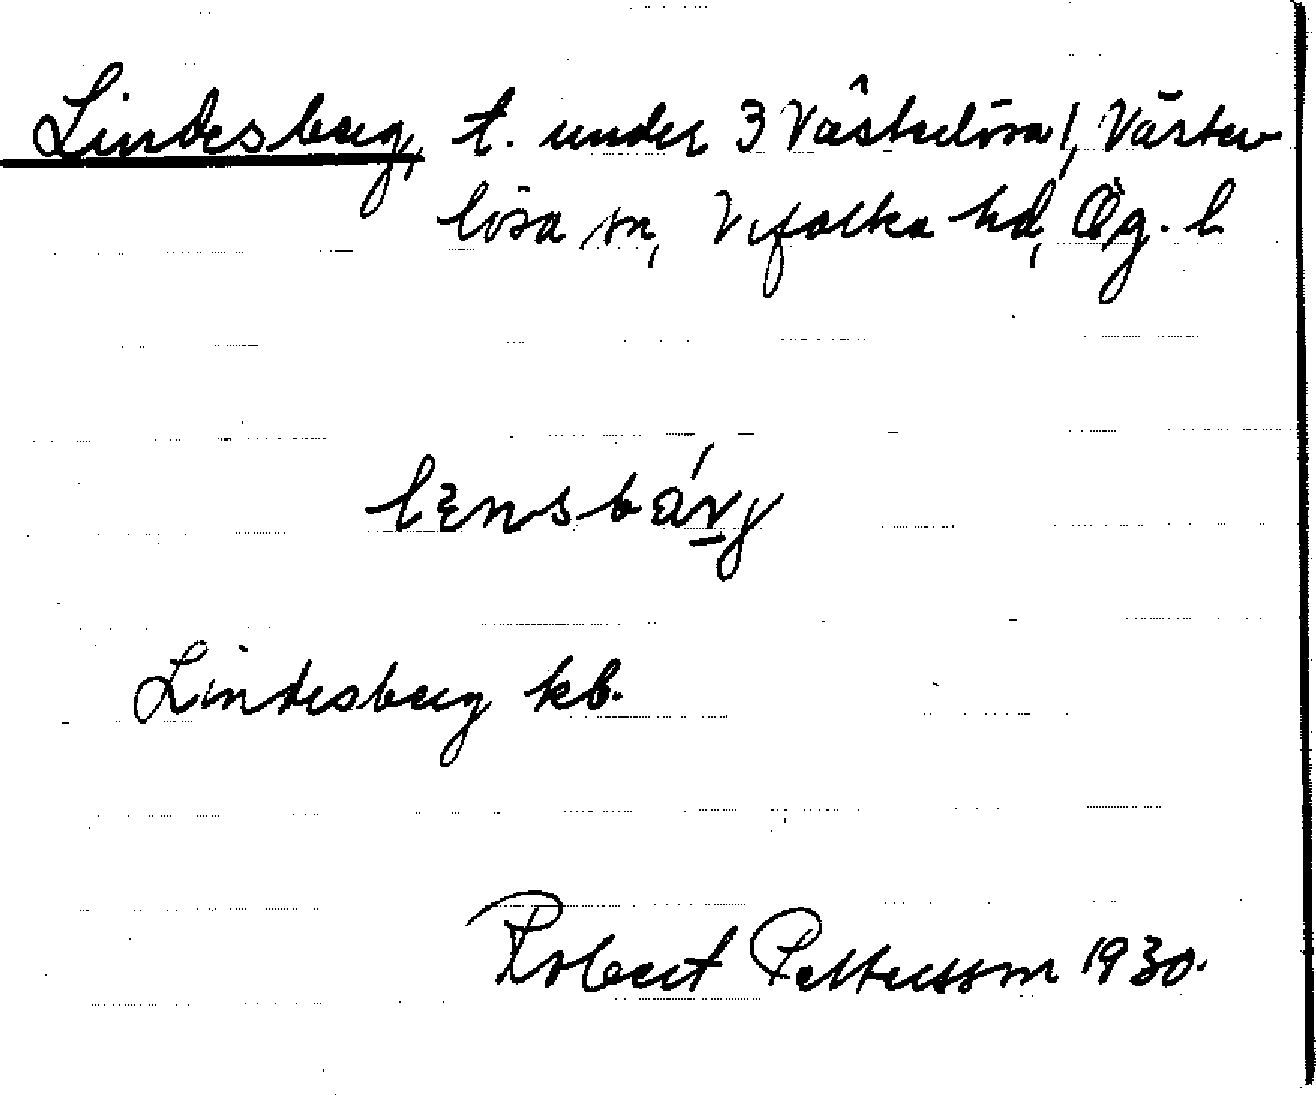 Lindesberg, t. under 3 Västerlösa, Väster
lösa sn, Vifolka hd, Ög. l
lɛnsbárj
Lindesberg kb.
Robert Pettersson 1930.